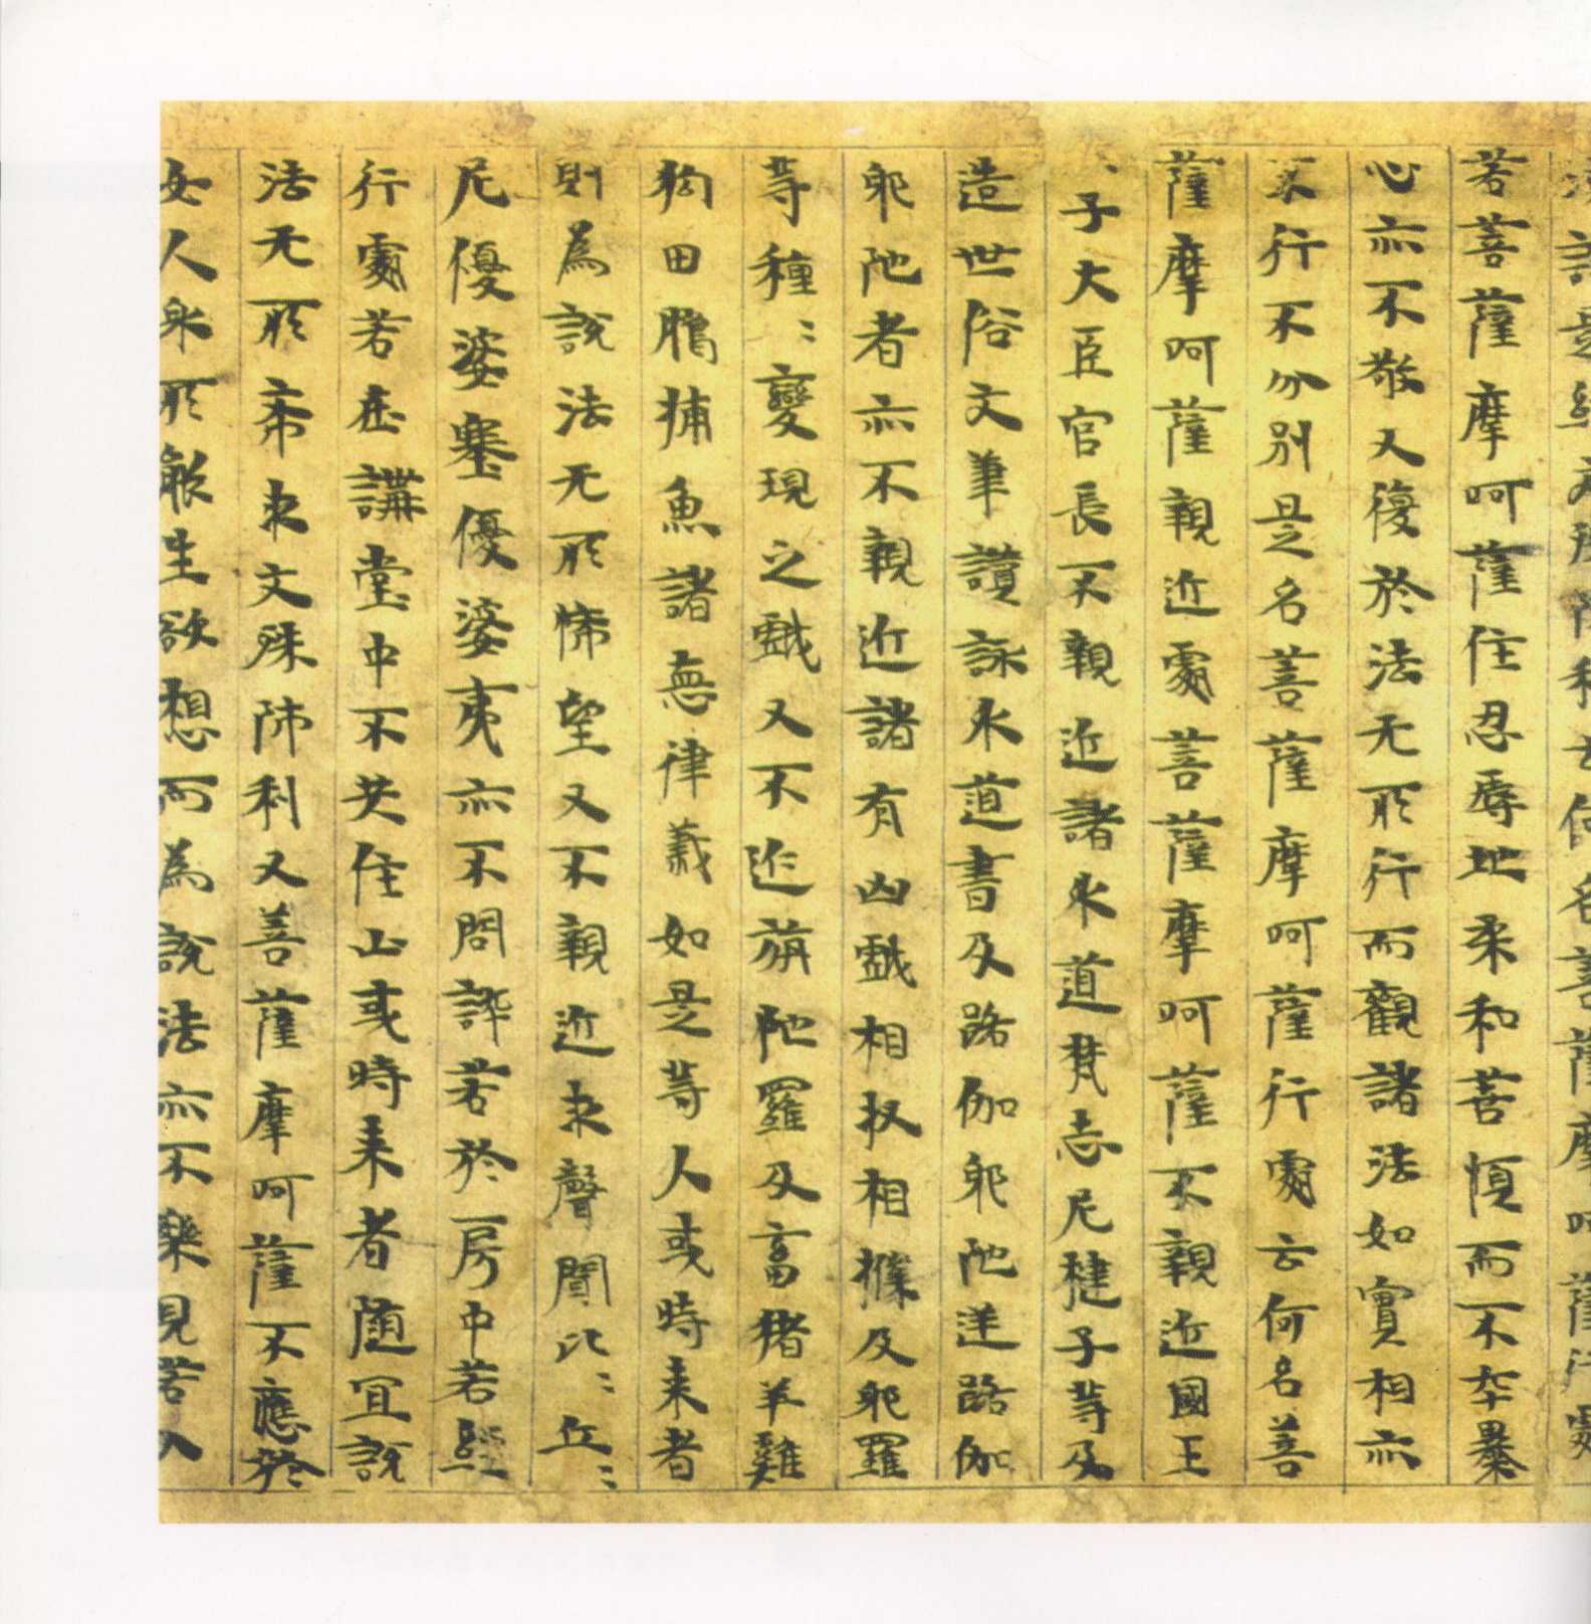 說是經利云何名菩薩摩呵薩行處
若菩薩摩呵薩住忍辱地柔和善順而不卒暴
心亦不敬又復於法无所行而觀諸法如實相亦
不行不分別是名菩薩摩呵薩行處云何名菩
薩摩呵薩親近處菩薩摩呵薩不親近國王
〻子大臣官長不親近諸外道梵志尼揵子等及
造世俗文筆讚詠外道書及路伽耶陀逆路伽
耶陀者亦不親近諸有凶戲相扠相撲及那羅
等種〻變現之戲又不近旃陀羅及畜猪羊雞
狗田獵捕魚諸惡律義如是等人或時来者
則為說法无所悕望又不親近求聲聞比〻丘〻
尼優婆塞優婆夷亦不問訊若於房中若經
行處若在講堂中不共住止或時来者隨宜說
法无所希求文殊師利又菩薩摩呵薩不應於
女人身所能生欲想而為說法亦不樂見若入